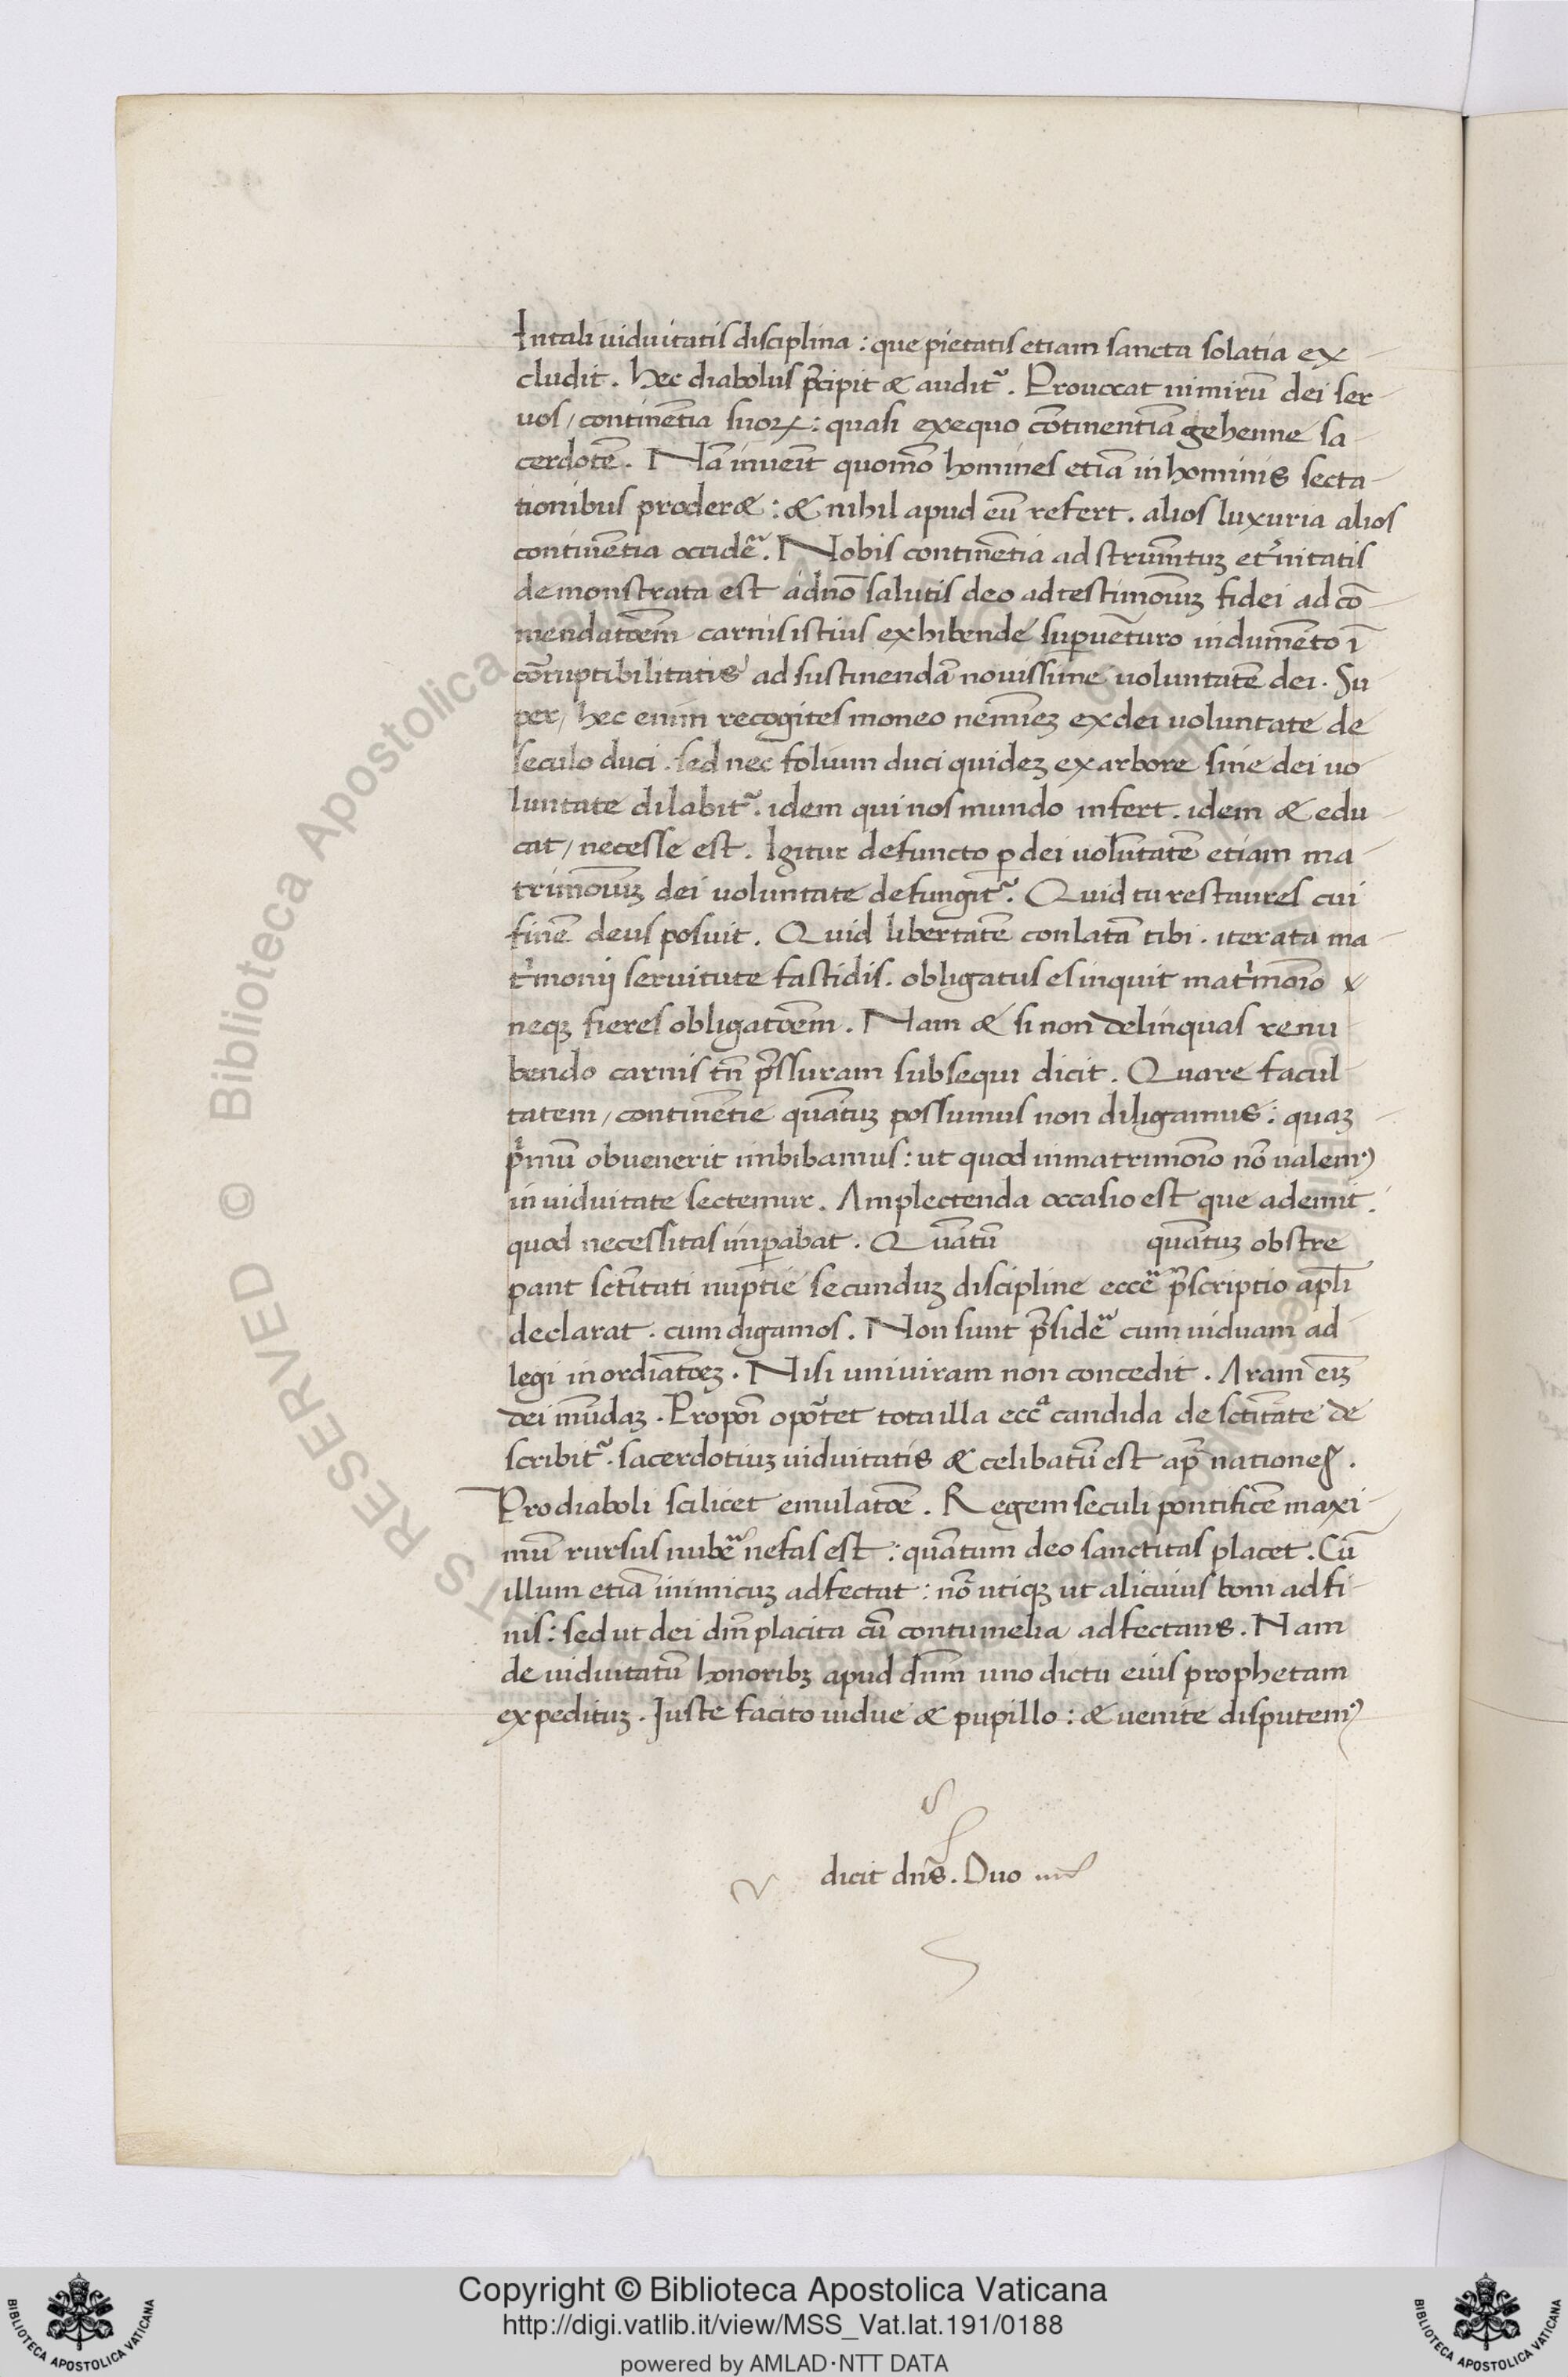 In tali uiduitatis disciplina : que pietatis etiam sancta solatia ex
cludit . hec diabolus p̄cipit & audit᷑ . Prouocat nimirū dei ser
uos / continētia suoꝝ : quasi exequo cōtinentiā gehenne sa
cerdotē . Nā inuenīt quomō homines etiā in hominis secta
tionibus proder& : & nihil apud eū refert . alios luxuria alios
continētia occidē᷑ . Nobis continētia ad strum̄tuꝫ et᷑nitatis
demonstrata est adnō salutis deo ad testimoīuꝫ fidei ad cō
mendatōem carnis istius exhibende suꝑuēturo indumēto ī
cōrruptibilitatis ad sustinendā nouissime uoluntatē dei . Su
per / hec enim recogites moneo nemīeꝫ ex dei uoluntate de
seculo duci . sed nec folium duci quideꝫ ex arbore sine dei uo
luntate dilabit᷑ . idem qui nos mundo infert . idem & edu
cat / necesse est . Igitur defuncto ꝑ dei uolūtatē etiam ma
trimoīuꝫ dei uoluntate defungit᷑ . Quid tu restaures cui
finē deus posuit . Quid libertatē conlatā tibi . iterata ma
t᷑monij seruitute fastidis . obligatus es inquit mat᷑moīo x
neqꝫ fieres obligatōem . Nam & si non delinquas renu
bendo carnis tn̄ p̄ssuram subsequi dicit . Quare facul
tatem / continētie quātuꝫ possumus non diligamus : quaꝫ
p̄mū obuenerit imbibamus : ut quod in matrimoīo nō ualemꝰ
in uiduitate sectemur . Amplectenda occasio est que ademit .
quod necessitas imꝑabat . Quātū quātuꝫ obstre
pant sctītati nuptie secunduꝫ discipline eccē᷑ p̄scriptio apl̄i
declarat . cum digamos . Non sunt p̄sidē᷑ cum uiduam ad
legi in ordiatōeꝫ . Nisi uniuiram non concedit . Aram eiꝫ
dei mūdaꝫ . Proponī opo᷑tet tota illa eccᵃ candida de sctītate de
scribit᷑ . sacerdotiuꝫ uiduitatis & celibatū est ap̄ nationes .
Pro diaboli scilicet emulatōe . Regem seculi pontificē maxi
mū rursus nubē᷑ nefas est : quātum deo sanctitas placet . Cū
illum etiā inimicuꝫ adfectat : nō utiqꝫ ut alicuius boni adfi
nis : sed ut dei dn̄i placita cū contumelia adfectans . Nam
de uiduitatū honoribꝫ apud dūm uno dictu eius prophetam
expedituꝫ . Iuste facito uidue & pupillo : & uenite disputemꝰ
dicit dn̄s . Duo
Copyright © Biblioteca Apostolica Vaticana
http://digi.vatlib.it/view/MSS_Vat.lat.191/0188
powered by AMLAD·NTT DATA